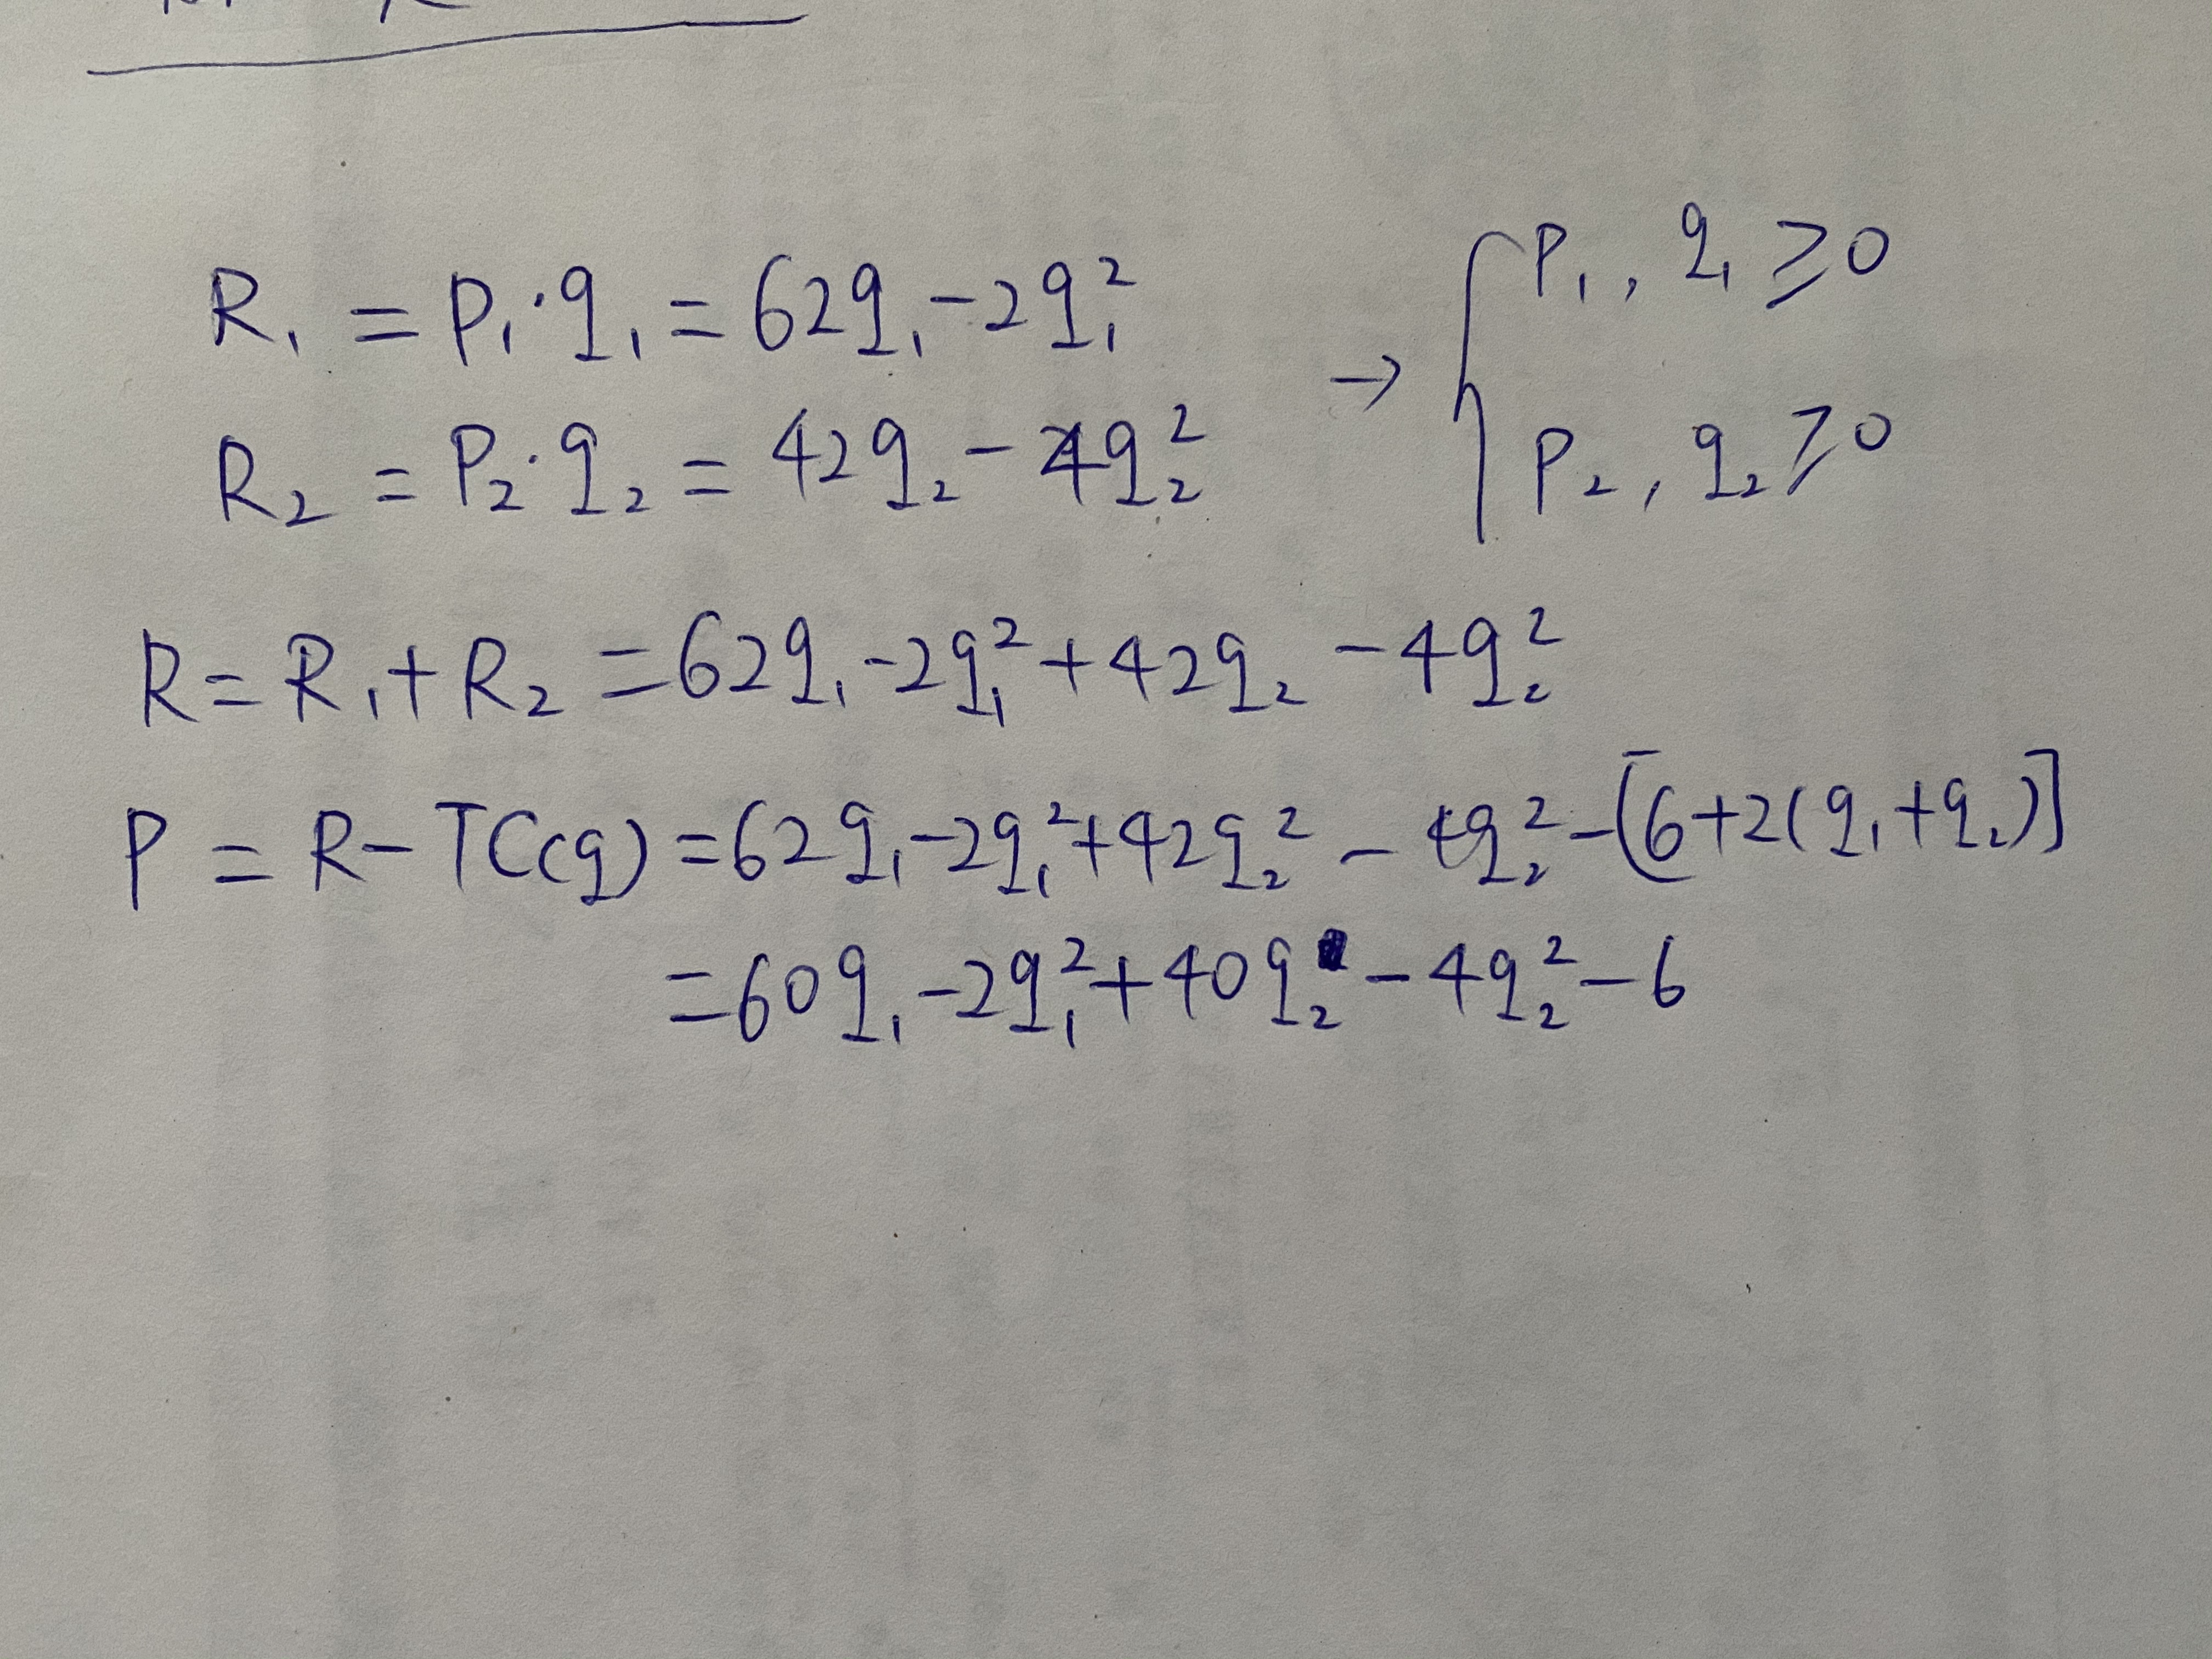 R₁ = P₁·q₁ = 62q₁ - 2q₁² → { P₁, q₁ ≥ 0
R₂ = P₂·q₂ = 42q₂ - 4q₂² P₂, q₂ ≥ 0
R = R₁ + R₂ = 62q₁ - 2q₁² + 42q₂ - 4q₂²
P = R - TC(q) = 62q₁ - 2q₁² + 42q₂² - 4q₂² - [6 + 2(q₁ + q₂)]
= 60q₁ - 2q₁² + 40q₂ - 4q₂² - 6